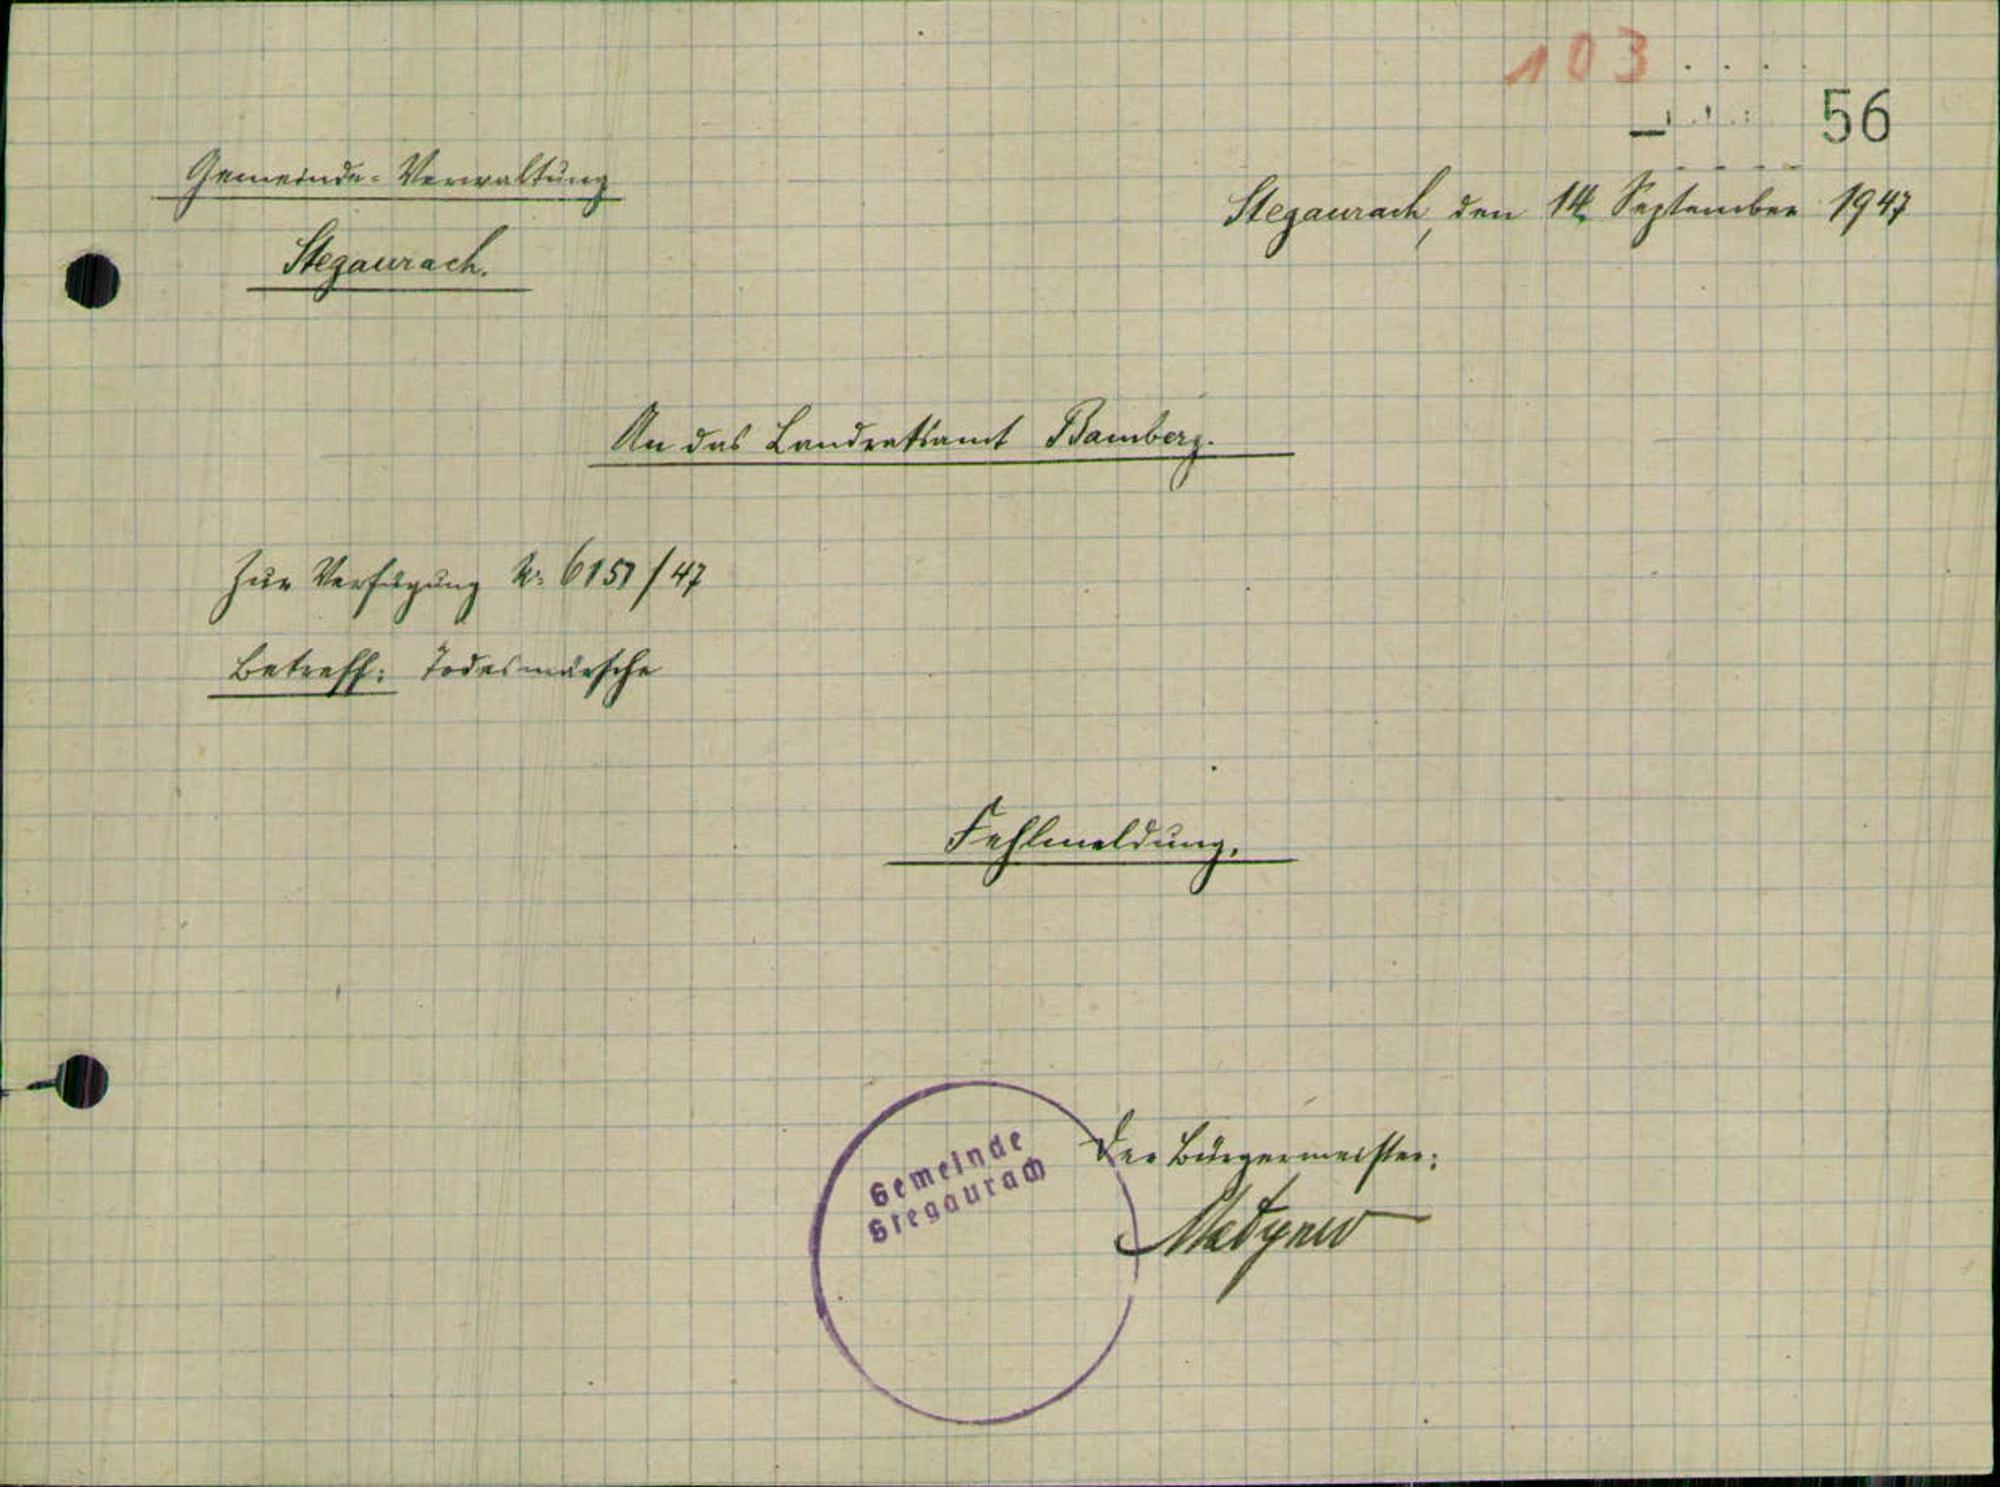 103
56
Gemeinde-Verwaltung
Stegaurach, den 14. September 1947
Stegaurach.
An das Landratsamt Bamberg.
Zur Verfügung Nr. 6151/47
Betreff: Todesmärsche
Fehlmeldung.
Der Bürgermeister:
Gemeinde
Stegaurach